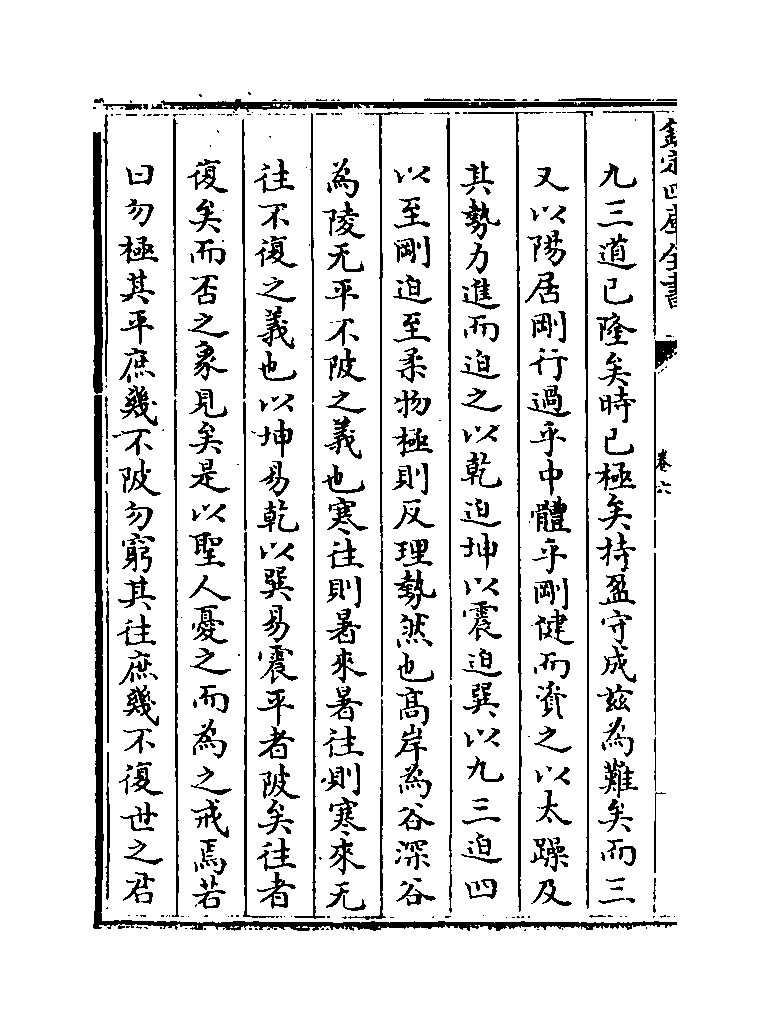 欽定四庫全書
卷六
九三道已隆矣時已極矣持盈守成兹為難矣而三
又以陽居剛行過乎中體乎剛健而資之以太躁及
其勢力進而迫之以乾迫坤以震迫巽以九三迫四
以至剛迫至柔物極則反理勢然也高岸為谷深谷
為陵无平不陂之義也寒往則暑來暑往則寒來无
往不復之義也以坤易乾以巽易震平者陂矣往者
復矣而否之象見矣是以聖人憂之而為之戒焉若
曰勿極其平庶幾不陂勿窮其往庶幾不復世之君